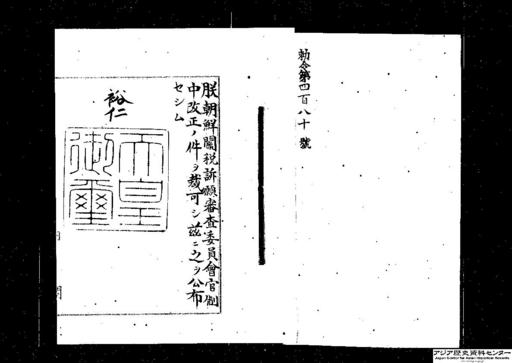 勅令第四百八十號
朕朝鮮關稅訴願審査委員會官制
中改正ノ件ヲ裁可シ玆ニ之ヲ公布
セシム
裕仁
天皇
御璽
アジア歴史資料センター
Japan Center for Asian Historical Records